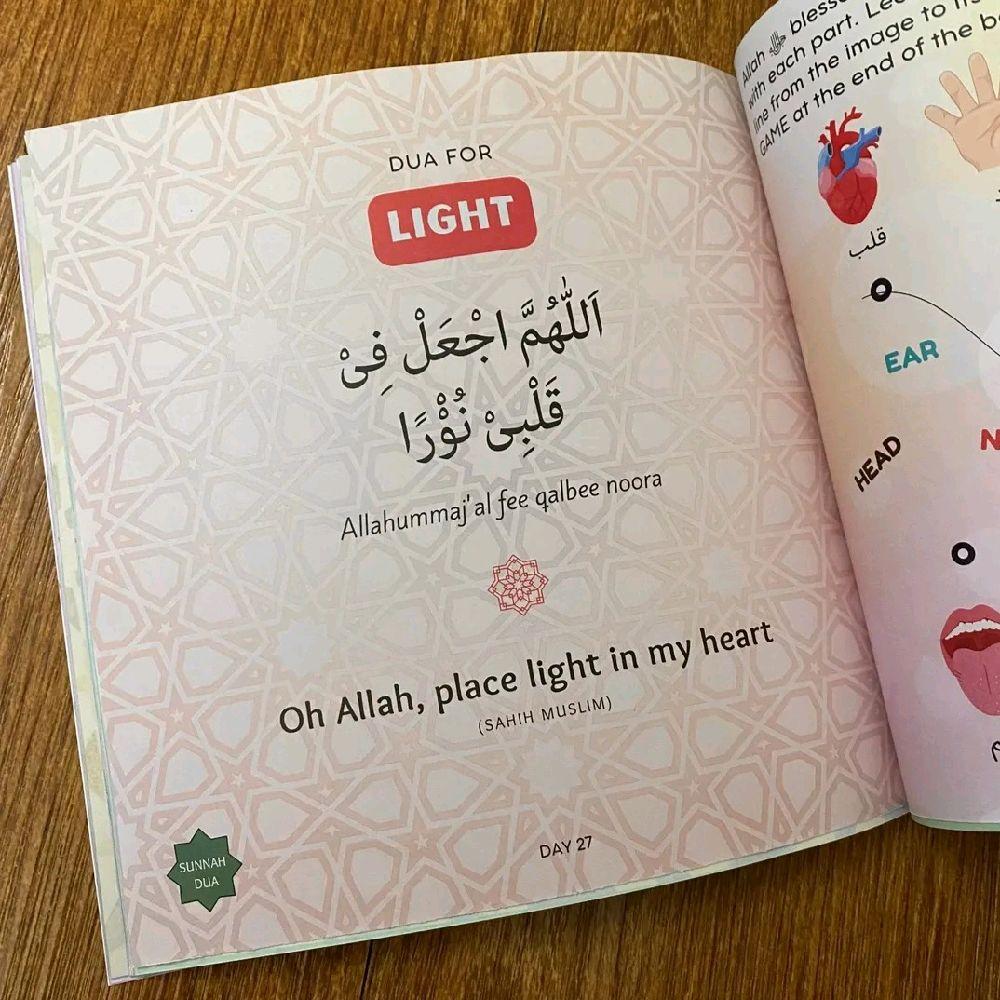 DUA FOR
LIGHT
اَللّٰهُمَّ اجْعَلْ فِىْ
قَلْبِىْ نُوْرًا
Allahummaj'al fee qalbee noora
Oh Allah, place light in my heart
(SAHIH MUSLIM)
SUNNAH
DUA
DAY 27
Allah ﷻ
with each part.
line from the image to
GAME at the end of the
قلب
EAR
HEAD